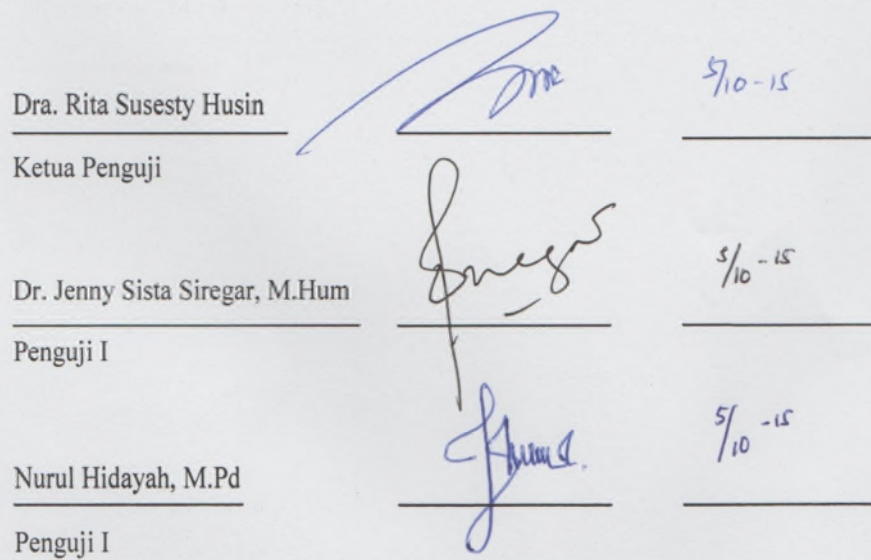 Dra. Rita Susesty Husin 5/10-15
Ketua Penguji
Dr. Jenny Sista Siregar, M.Hum 5/10-15
Penguji I
Nurul Hidayah, M.Pd 5/10-15
Penguji I